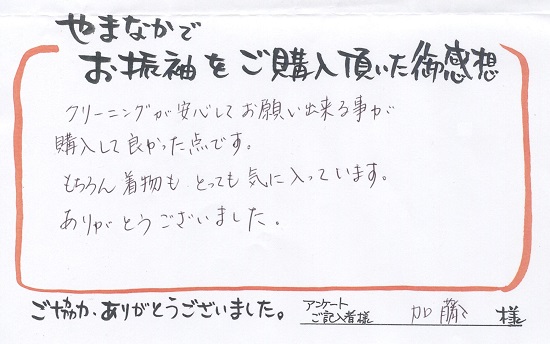 やまなかで
お振袖をご購入頂いた御感想
クリーニングが安心してお願い出来る事が
購入して良かった点です。
もちろん着物も とっても気に入っています。
ありがとうございました。
ご協力、ありがとうございました。
アンケート
ご記入者様 加藤 様